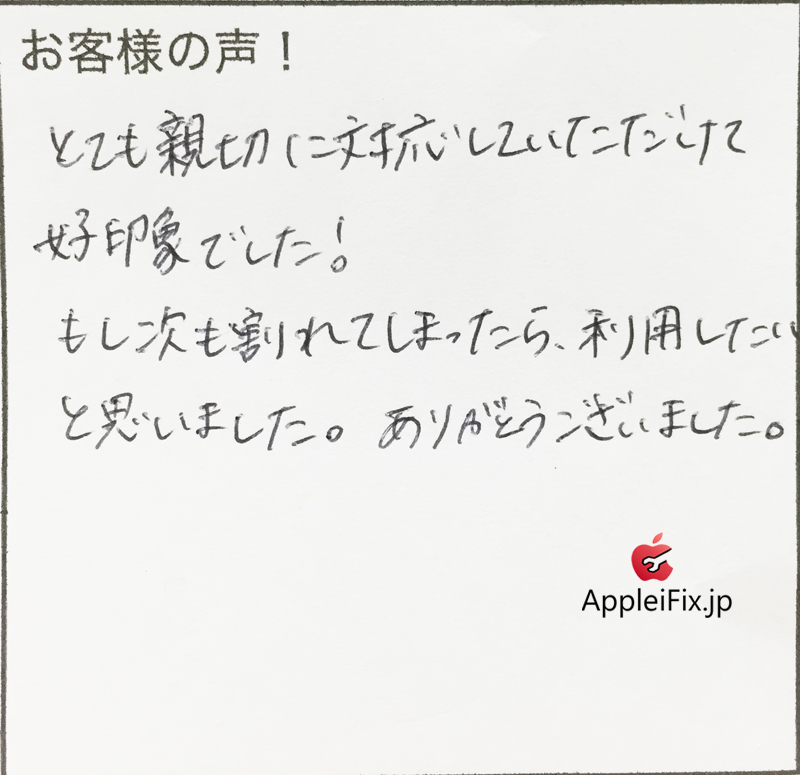 お客様の声！
とても親切に対応していただけて
好印象でした！
もし次も割れてしまったら、利用したい
と思いました。ありがとうございました。
AppleiFix.jp